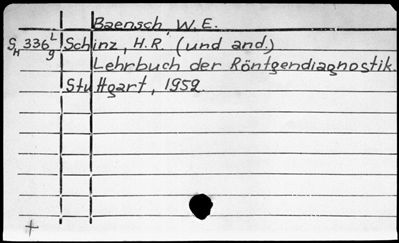 Baensch, W.E.
Sn 336 L/g Schinz, H.R. (und and.)
Lehrbuch der Röntgendiagnostik.
Stuttgart, 1952.
+